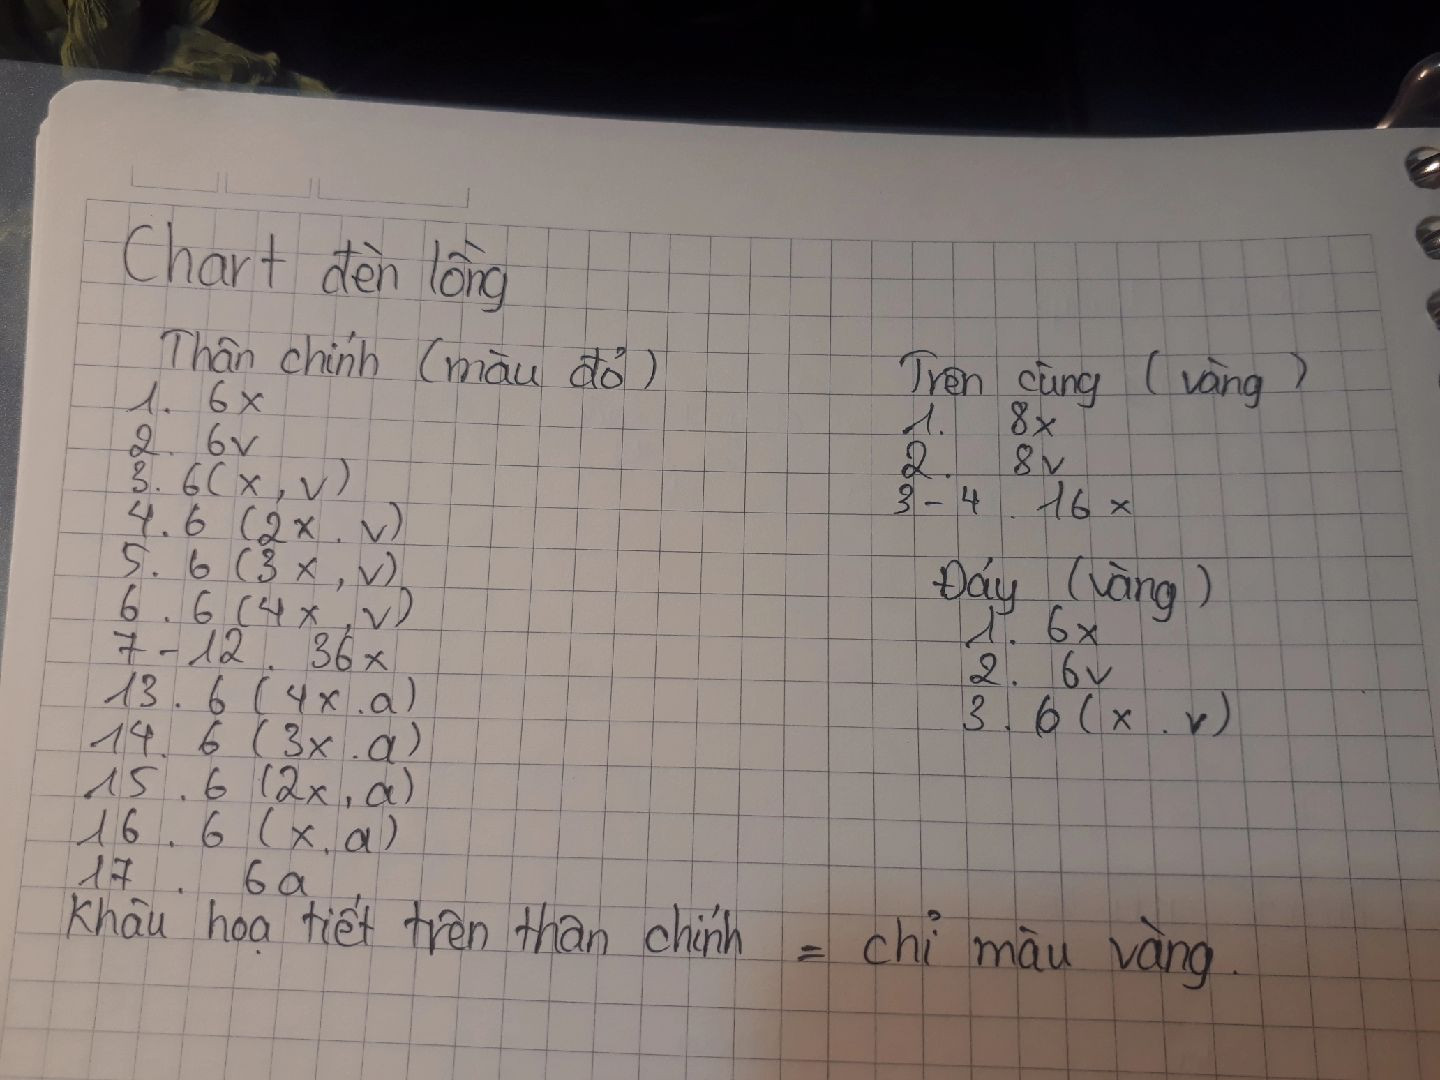 Chart đèn lồng
Thân chính (màu đỏ)
1. 6x
2. 6v
3. 6(x, v)
4. 6 (2x. v)
5. 6 (3x, v)
6. 6 (4x, v)
7-12. 36x
13. 6 (4x.a)
14. 6 (3x.a)
15. 6 (2x,a)
16. 6 (x.a)
17. 6a
Khâu hoạ tiết trên thân chính = chỉ màu vàng.
Trên cùng (vàng)
1. 8x
2. 8v
3-4. 16x
Đáy (vàng)
1. 6x
2. 6v
3. 6(x.v)